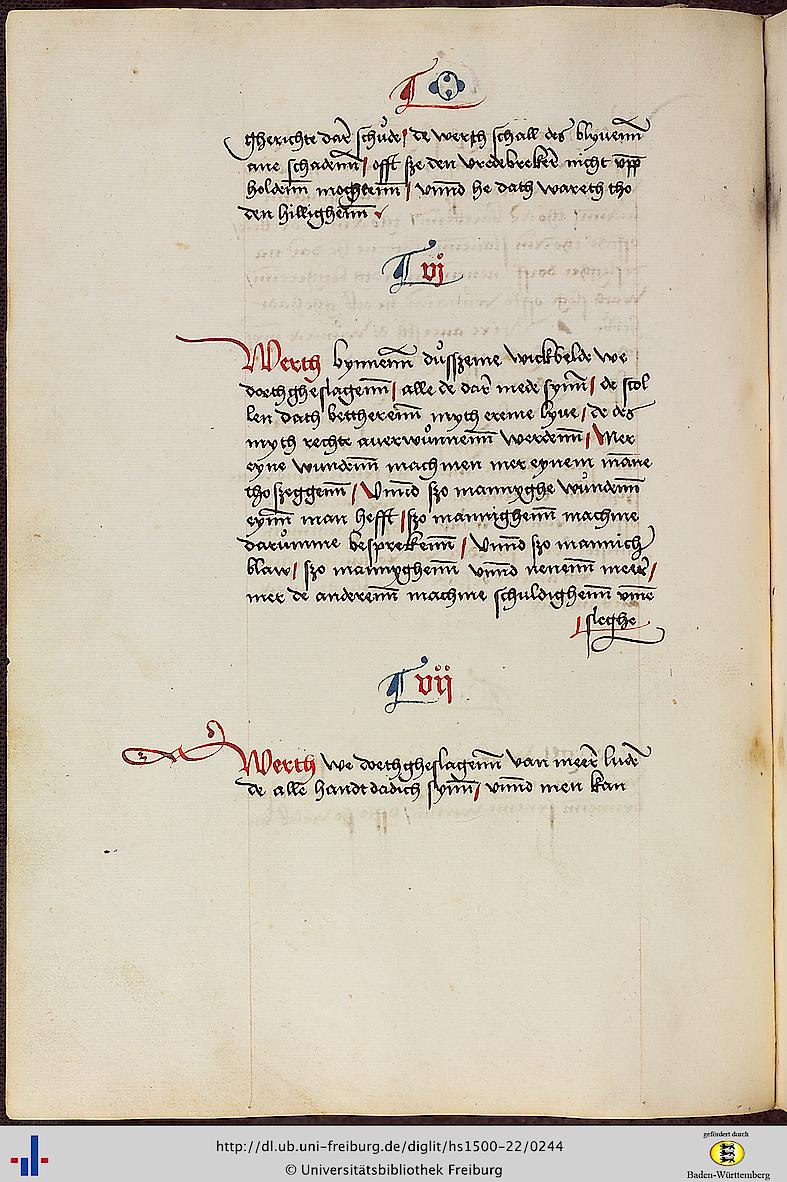 gherichte dar schude / de werth schall des blyuenn
ane schadenn / offt sze den vredebreker nicht vpp
holdenn mochtenn / vnnd he dath wareth tho
den hillighenn
vj
Werth bynnenn dusszeme wickbelde we
doethgheslagenn / alle de dar mede synn / de scol
len dath bettherenn myth ereme lyue / de des
myth rechte auerwunnenn werdenn / Mer
eyne wundenn mach men mer eynem manne
tho szeggenn / Vnnd szo mannyghe wundenn
eynn man hefft / szo mannighenn machme
darumme besprekenn / Vnnd szo mannich
blaw / szo mannyghenn vnnd nenenn meer /
mer de anderenn machme schuldighenn vme
/ sleghe
vij
Werth we doethgheslagenn van meer lude
de alle handtdadich synn / vnnd men kan
http://dl.ub.uni-freiburg.de/diglit/hs1500-22/0244
© Universitätsbibliothek Freiburg
gefördert durch
Baden-Württemberg